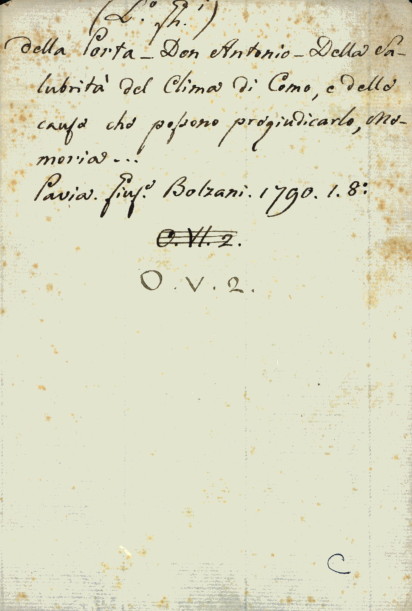 (L.º Gh.i)
della Porta - Don Antonio - Della Sa-
lubrità del Clima di Como, e delle
cause che possono progiudicarlo, Me-
moria...
Pavia. Gius.e Bolzani. 1790. 1. 8:
O.VI.2.
O.V.2.
C